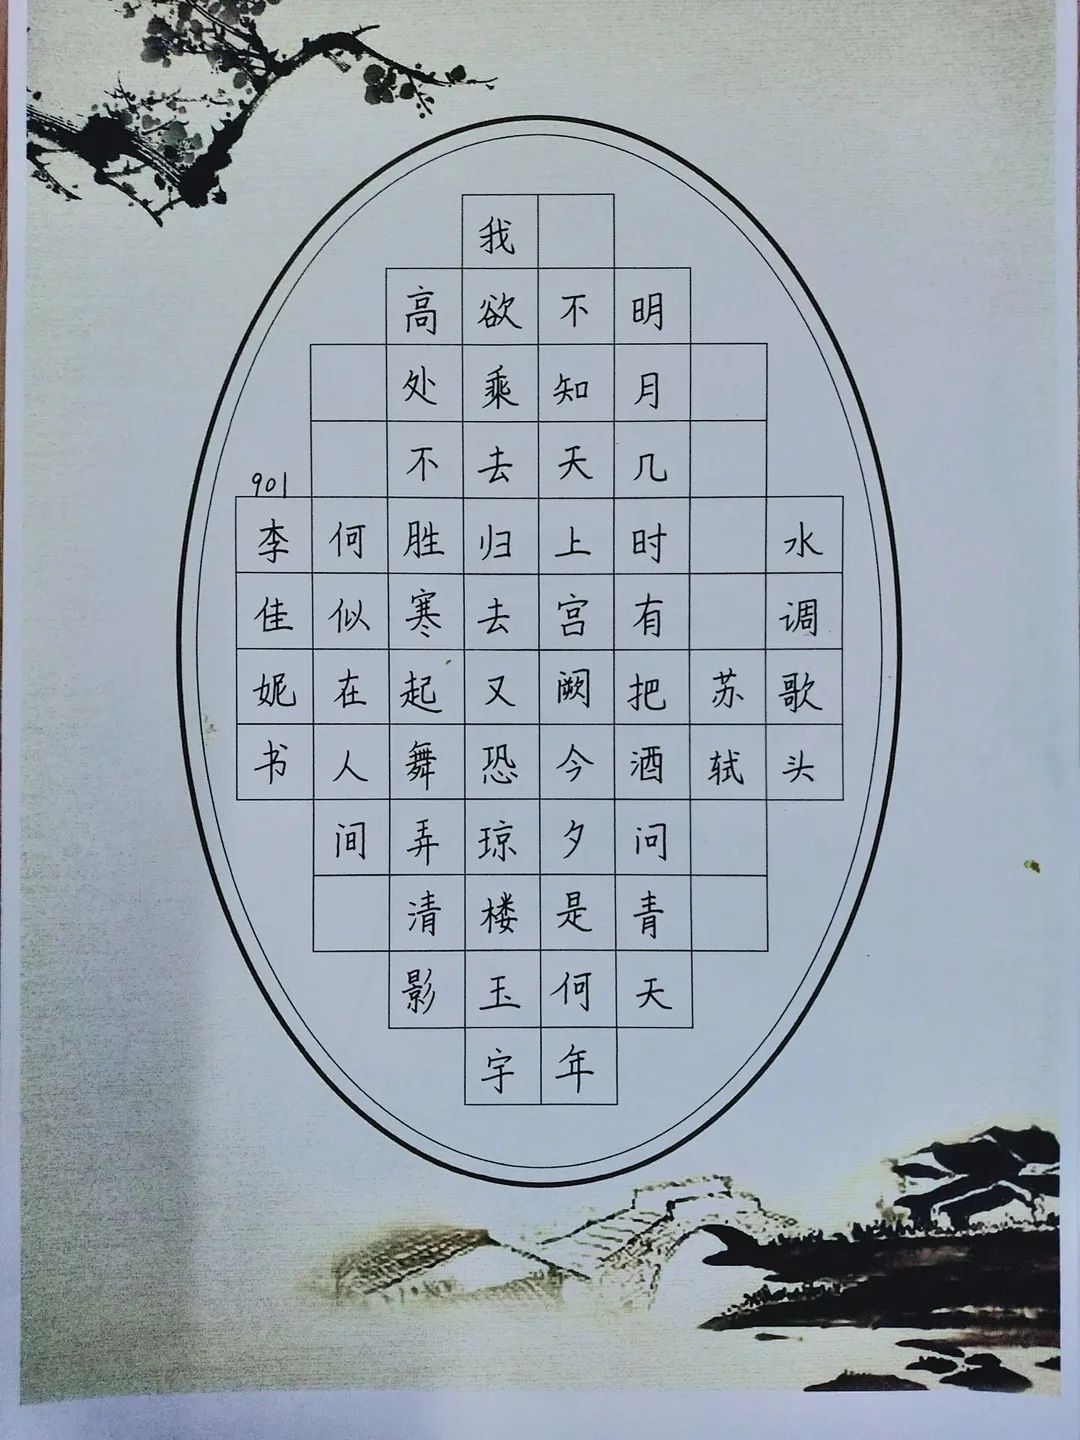 水调歌头
苏轼
明月几时有把酒问青天
不知天上宫阙今夕是何年
我欲乘去归去又恐琼楼玉宇
高处不胜寒起舞弄清影
何似在人间
901
李佳妮书